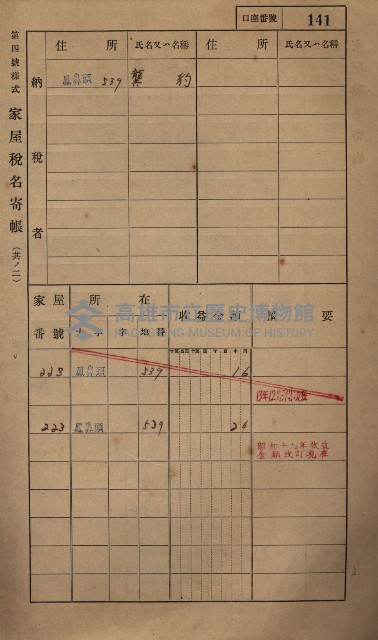 口座番號 141
第四號樣式 家屋稅名寄帳 (其ノ二)
納稅者
住所 氏名又ハ名稱 住所 氏名又ハ名稱
鳳鼻頭 539 龔 約
家屋番號 所在 收益金額 摘要
大字 字 地番
223 鳳鼻頭 539 16
223 鳳鼻頭 539 26
昭和十九年改正
金額改訂
高雄市立歷史博物館
KAOHSIUNG MUSEUM OF HISTORY